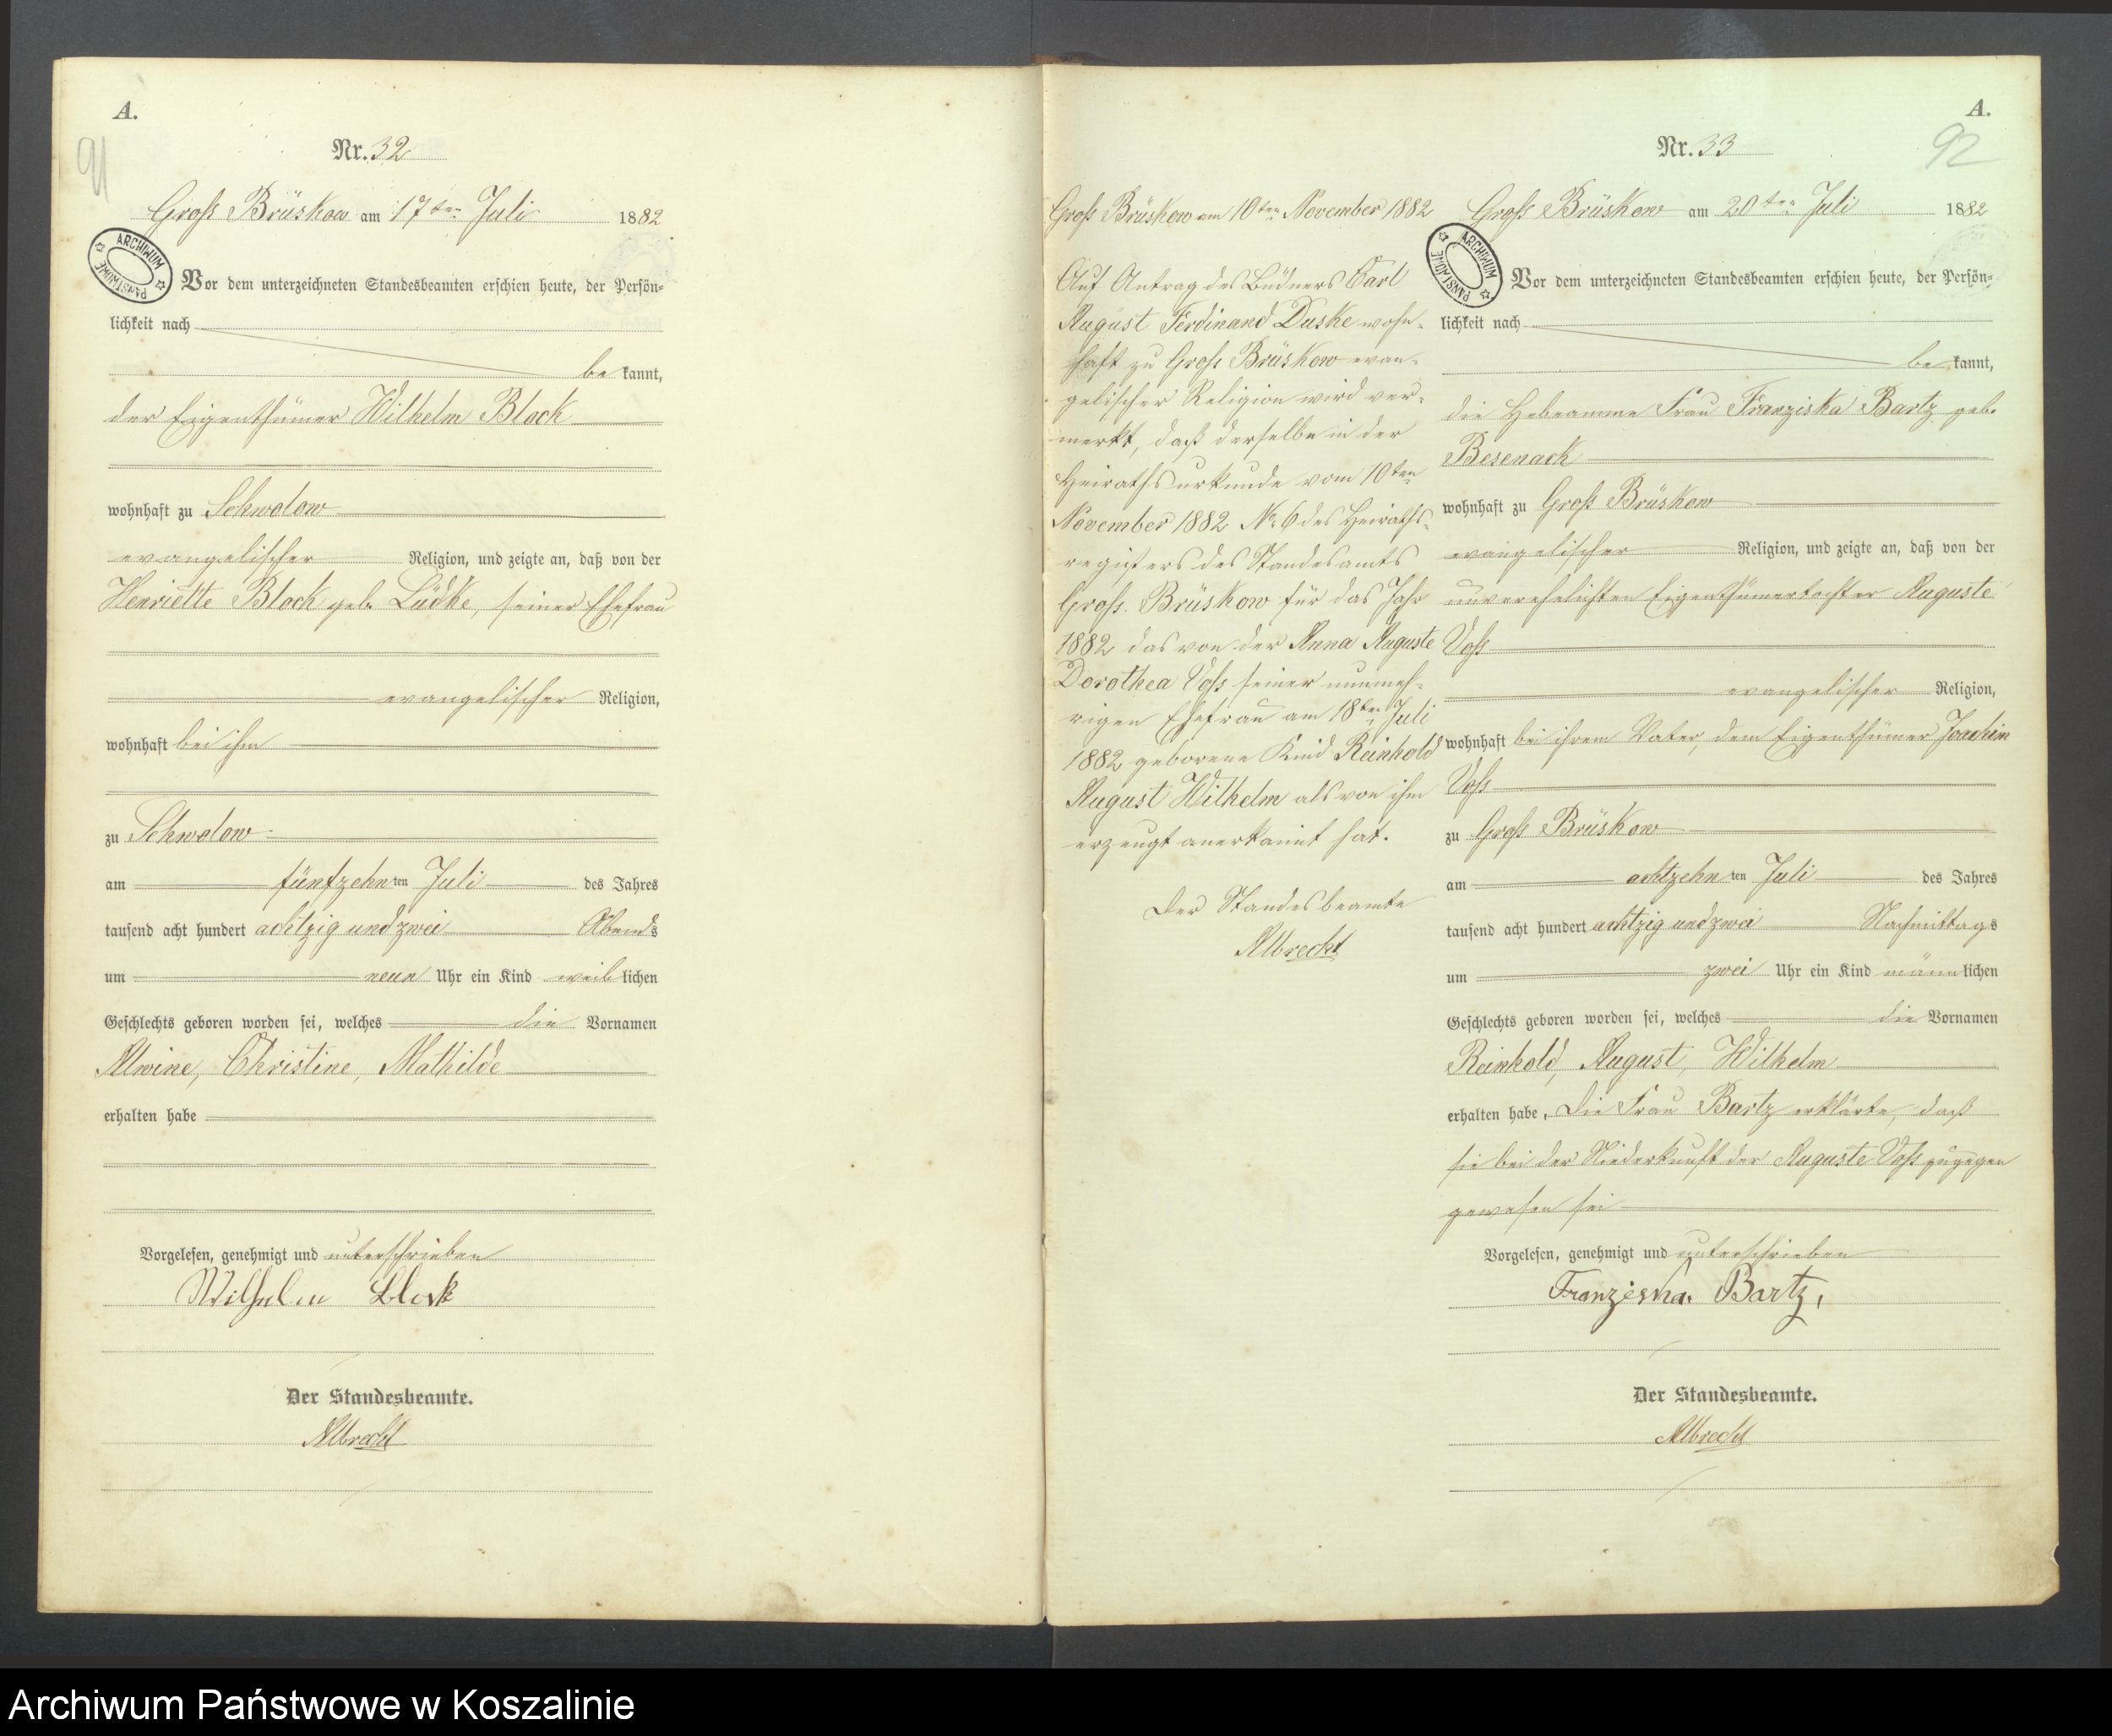 A.
91
Nr. 32
Groß Brüskow am 17ten Juli 1882
ARCHIWUM PAŃSTWOWE
Vor dem unterzeichneten Standesbeamten erschien heute, der Persön-
lichkeit nach
be kannt,
der Eigenthümer Wilhelm Block
wohnhaft zu Schwolow
evangelischer Religion, und zeigte an, daß von der
Henriette Block geb. Lüdke, seiner Ehefrau
evangelischer Religion,
wohnhaft bei ihm
zu Schwolow
am fünfzehnten Juli des Jahres
tausend acht hundert achtzig und zwei Abends
um neun Uhr ein Kind weiblichen
Geschlechts geboren worden sei, welches die Vornamen
Alwine, Christine, Mathilde
erhalten habe
Vorgelesen, genehmigt und unterschrieben
Wilhelm Block
Der Standesbeamte.
Albrecht
Groß Brüskow am 10ten November 1882
Auf Antrag des Büdners Carl
August Ferdinand Duske wohn-
haft zu Groß Brüskow evan-
gelischer Religion wird ver-
merkt, daß derselbe in der
Heirathsurkunde vom 10ten
November 1882 No 6 des Heiraths-
registers des Standesamts
Groß Brüskow für das Jahr
1882 das von der Anna Auguste
Dorothea Voß seiner nunmeh-
rigen Ehefrau am 18ten Juli
1882 geborene Kind Reinhold
August Wilhelm als von ihm
erzeugt anerkannt hat.
Der Standesbeamte
Albrecht
A.
92
Nr. 33
Groß Brüskow am 20ten Juli 1882
ARCHIWUM PAŃSTWOWE
Vor dem unterzeichneten Standesbeamten erschien heute, der Persön-
lichkeit nach
be kannt,
die Hebeamme Frau Franziska Bartz geb.
Besenack
wohnhaft zu Groß Brüskow
evangelischer Religion, und zeigte an, daß von der
unverehelichten Eigenthümertochter Auguste
Voß
evangelischer Religion,
wohnhaft bei ihrem Vater, dem Eigenthümer Joachim
Voß
zu Groß Brüskow
am achtzehnten Juli des Jahres
tausend acht hundert achtzig und zwei Nachmittags
um zwei Uhr ein Kind männlichen
Geschlechts geboren worden sei, welches die Vornamen
Reinhold, August, Wilhelm
erhalten habe. Die Frau Bartz erklärte, daß
sie bei der Niederkunft der Auguste Voß zugegen
gewesen sei
Vorgelesen, genehmigt und unterschrieben
Franziska Bartz,
Der Standesbeamte.
Albrecht
Archiwum Państwowe w Koszalinie